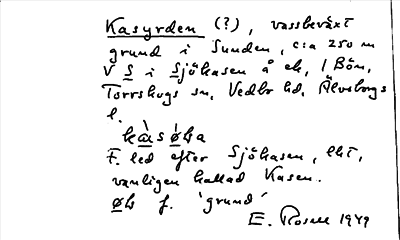 Kasyrden (?), vassbeväxt
grund i Sunden, c:a 250 m
V S i Sjökasen å ek, 1 Bön,
Torrskogs sn, Vedbo hd, Älvsborgs
l.
kàsøka
F. led efter Sjökasen, lkt,
vanligen kallad Kasen.
øk f. 'grund'
E. Rosell 1949